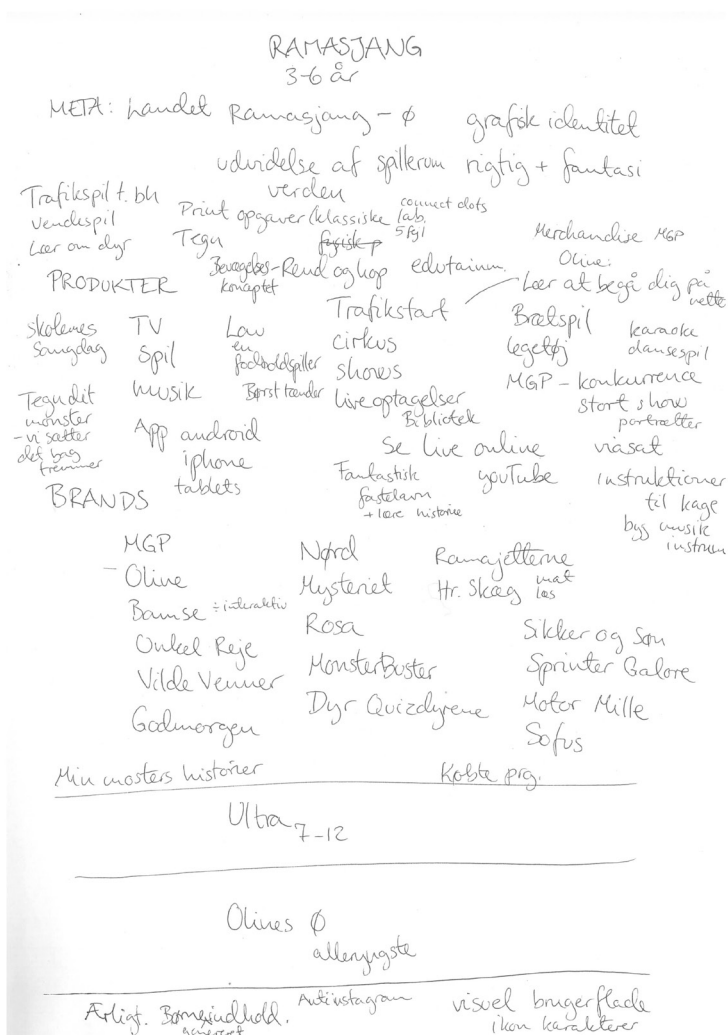 RAMASJANG
3-6 år
META: Landet Ramasjang - ø grafisk identitet
udvidelse af spillerum rigtig + fantasi
verden
Trafikspil f. bh
vendespil
Lær om dyr
Print opgaver (klassiske
connect dots
lab.
5 fejl
Tegn
fysisk p
Bevægelses-Rend og hop
konceptet
edutainm.
Merchandise MGP
Oline:
Lær at begå dig på
nette
PRODUKTER
skolernes
Sangdag
Tegn dit
monster
- vi sætter
det bag
tremmer
TV
Spil
musik
App android
iphone
tablets
Lav
en
fodboldspiller
Børst tænder
Trafikstart
cirkus
shows
Live optagelser
Bibliotek
se live online
Fantastisk
fastelavn
+ lære historie
youTube
Brætspil
legetøj
karaoke
dansespil
MGP - konkurrence
stort show
portrætter
viasat
instruktioner
til kage
byg musik
instrum
BRANDS
MGP
- Oline
Bamse ÷ interaktiv
Onkel Reje
Vilde Venner
Godmorgen
Nørd
Mysteriet
Rosa
MonsterBuster
Dyr Quizdyrene
Ramajetterne
Hr. Skæg mat
læs
Sikker og Søn
Sprinter Galore
Motor Mille
Sofus
Min mosters historier
Købte prg.
Ultra 7-12
Olines Ø
alleryngste
Ærligt. Børneindhold.
genereret
Antiinstagram
visuel brugerflade
ikon karakterer